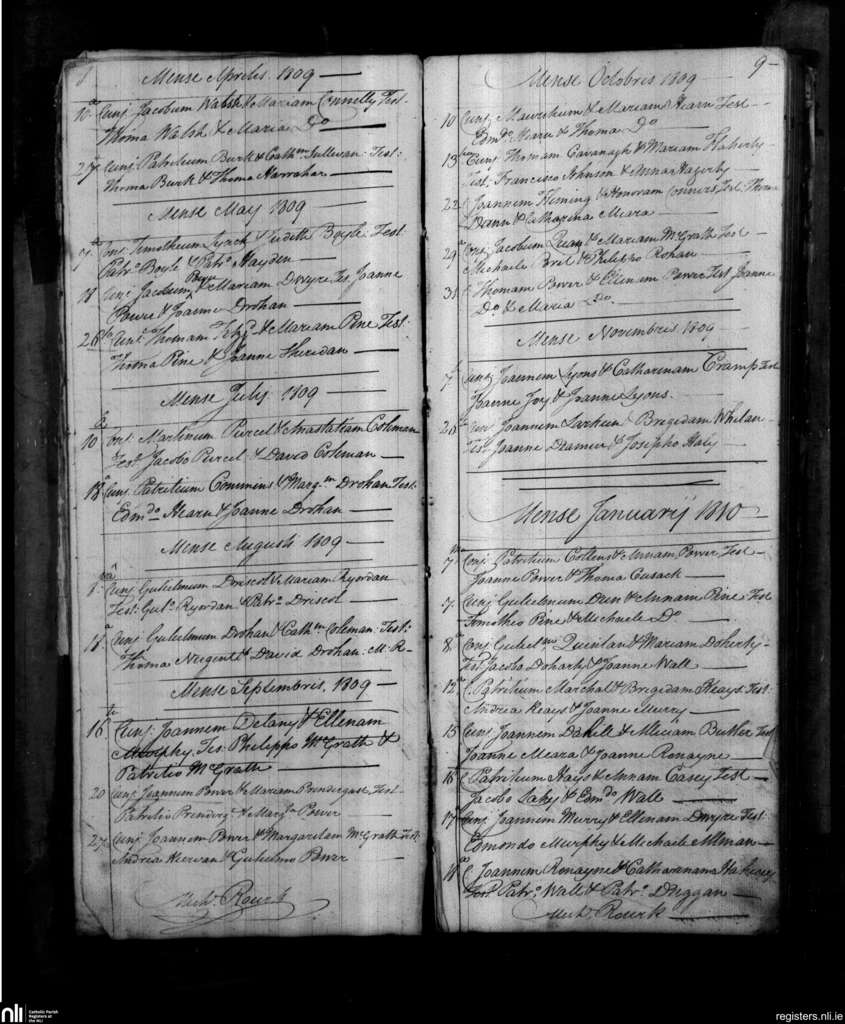 Mense Aprilis 1809
10 Cunj Jacobum Walsh & Mariam Connelly Test.
Thoma Walsh & Maria Do
27 Cunj. Patritium Burk & Cathm Sullivan. Test:
Thoma Burk & Thoma Hanrahan
Mense May 1809
7 Cunj Timotheum Lynch & Judith Boyle Test
Patro Boyle & Patro Hayden
18 Cunj Jacobum Power & Mariam Dwyre Tes Joanne
Power & Joanne Drohan
26 Cunj Thomam & Mariam Pine Test.
Thoma Pine & Joanne Sheridan
Mense July 1809
10 Conj Martinum Purcel & Anastatiam Coleman
Test Jacobo Purcel & David Coleman
18 Cunj Patritium Commens & Margm Drohan Test.
Edmdo Hearn & Joanne Drohan
Mense Augusti 1809
Cunj Gulielmum Driscol & Mariam Ryordan
Test: Gulo Ryordan & Patro Driscol
Cunj Gulielmum Drohan & Cathm Coleman. Test:
Thoma Nugent & David Drohan. M: R
Mense Septembris 1809
16 Cunj. Joannem Delany & Ellenam
Murphy Tes. Philippo McGrath &
Patritio McGrath
20 Cunj Joannem Power & Mariam Prendergast Test
Patritio Prenderg. & Margta Power
27 Cunj. Joannem Power & Margaretam McGrath Test.
Andrea Kerwan & Gulielmo Power
Michl. Rourk
9
Mense Octobris 1809
10 Cunj Mauritium & Mariam Hearn Test
Edmdo Hearn & Thoma Do
13 Cunj Thomam Cavanagh & Mariam Flaherty
Test. Francisco Johnson & Anna Hagerty
22 C Joannem Fleming & Honoram Connors Test. Thoma
Dann & Catharina Meara
29 Conj Jacobum & Mariam McGrath Test
Michaele & Philippo Rohan
31 C Thomam Power & Ellenam Power Test Joanne
Do & Maria Do.
Mense Novembris 1809
7 Cunj Joannem Lyons & Catharinam Cramp Test
Joanne Joy & Joanne Lyons.
26 Cunj Joannem Larkin & Brigidam Whelan
Test Joanne & Josepho Haly
Mense Januarij 1810
7 Conj Patritium Collens & Annam Power Test
Joanne Power & Thoma Cusack
7 Cunj Gulielmum Dun & Annam Pine Test
Timotheo Pine & Michaele Do
8 Conj Gulielmu Quinlan & Mariam Doherty
Test Jacobo Doharty & Joanne Wall
12 C. Patritium Marchal & Brigidam Keays Test:
Andrea Keays & Joanne Murry
15 Cunj Joannem & Butler Test
Joanne Meara & Joanne Ronayne
16 C Patritium Hays & Annam Casey Test
Jacobo Lahy & Edmdo Wall
17 Cunj Joannem Murry & Ellenam Dwyre Test.
Edmondo Murphy & Michaele Allman
18 C Joannem Ronayne & Catharinam
Test Patro. Wall & Patro Duggan
Michl. Rourk
nli Catholic Parish
Registers at
the NLI
registers.nli.ie